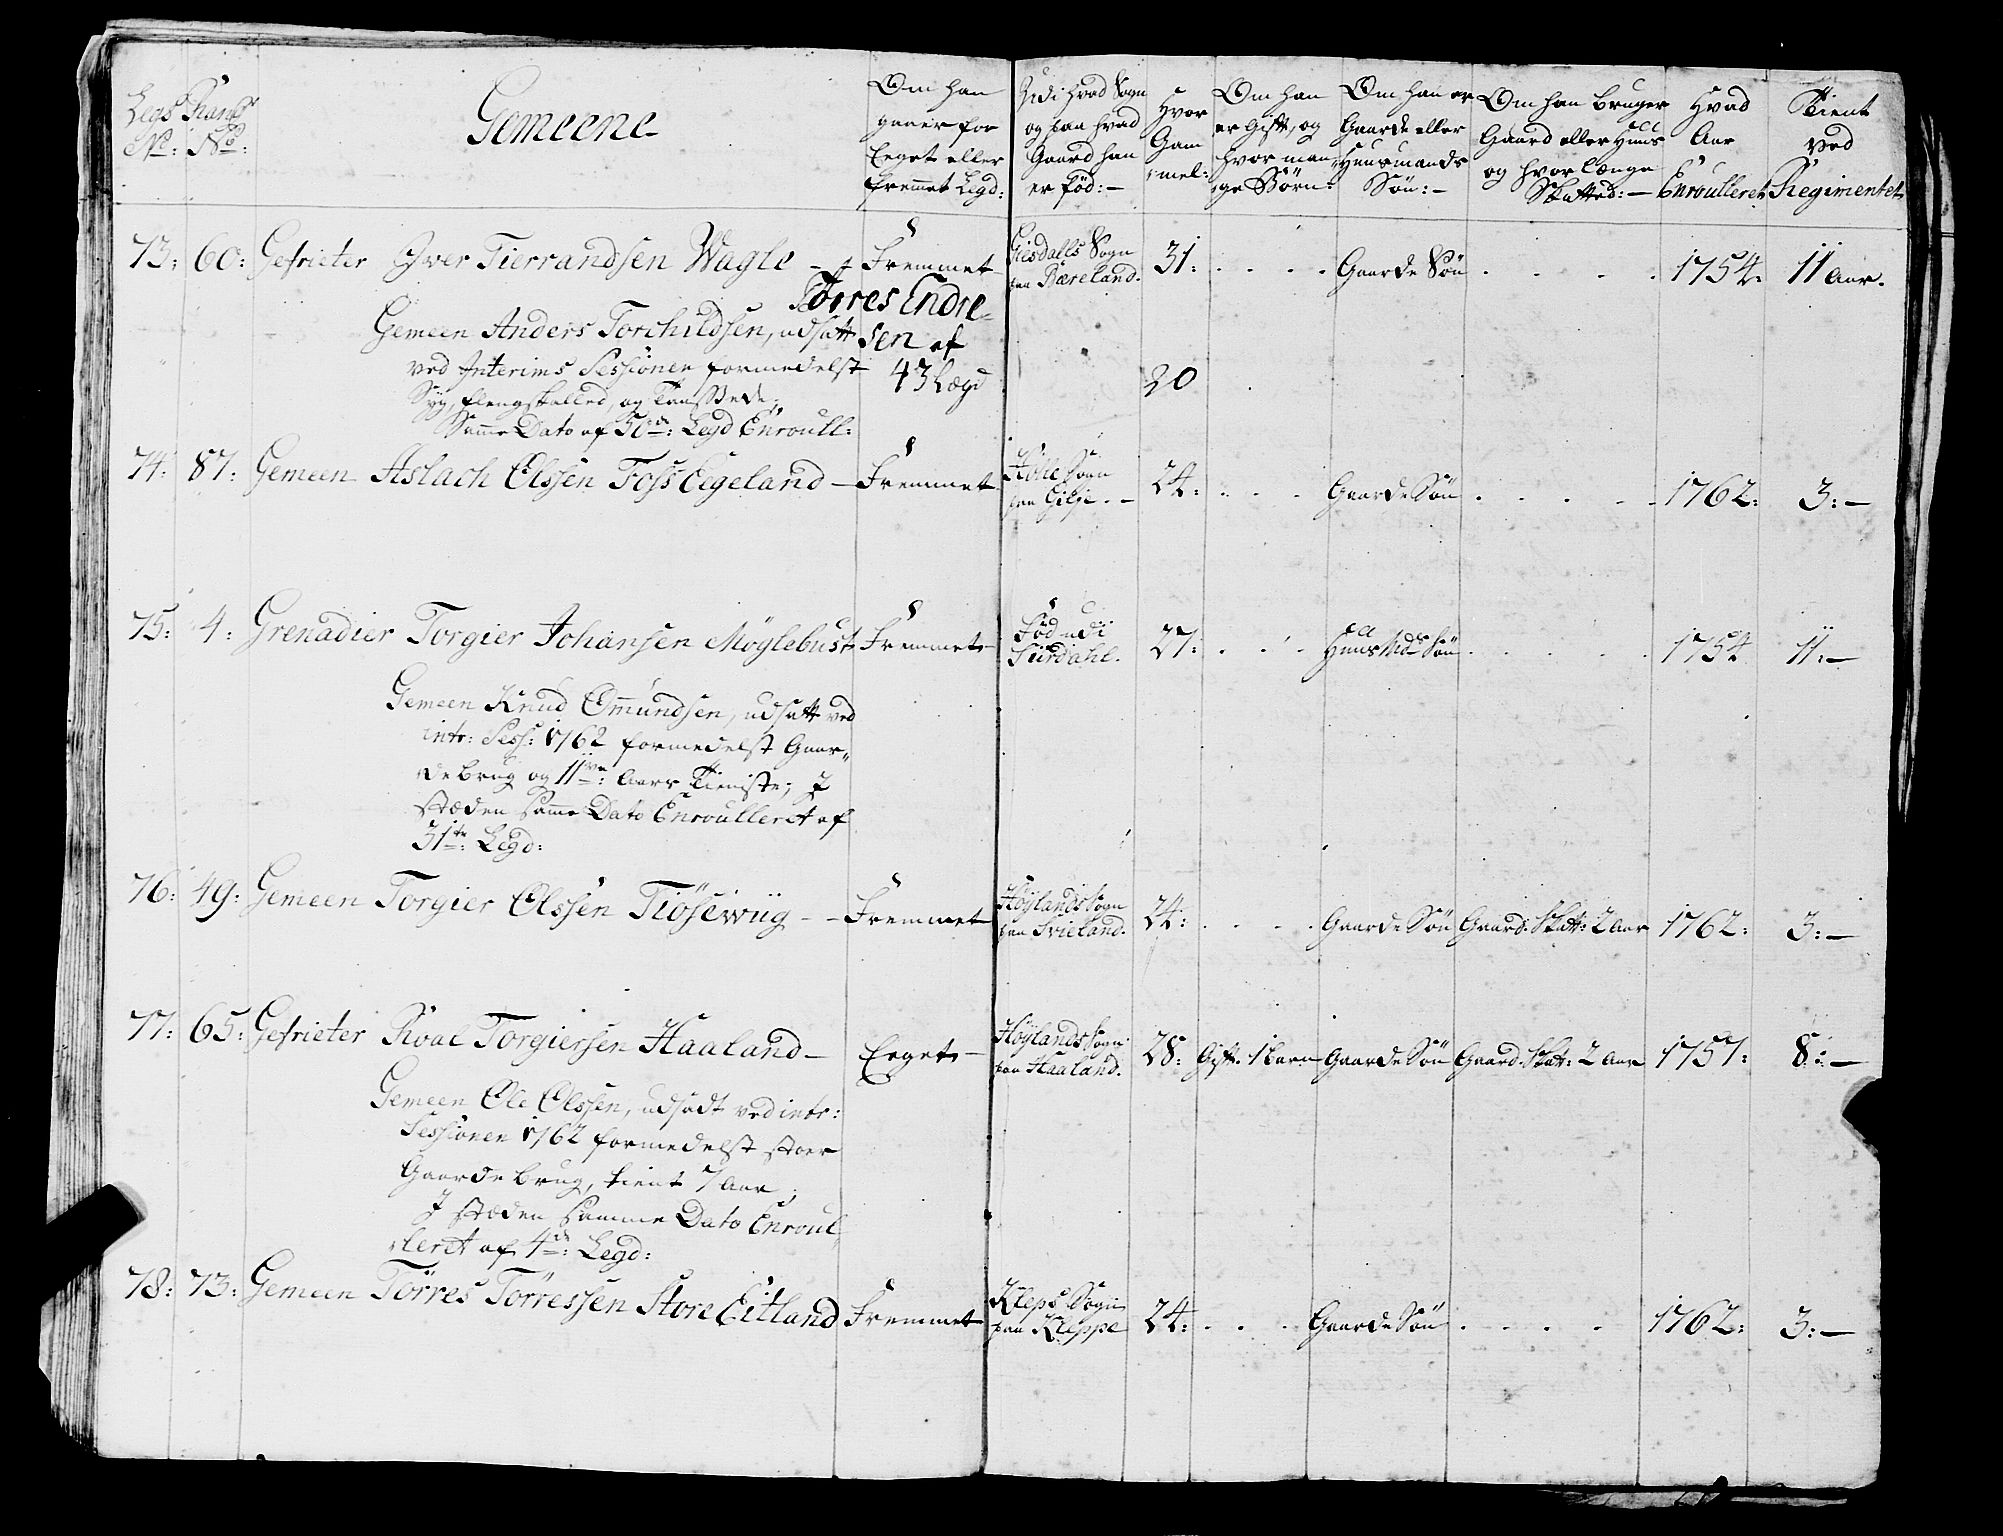 Legs Rang
No: No:
Gemeene
Om han
gaaer for
Eeget eller
fremmet Legd:
Udi hvad Sogn
og paa hvad
Gaard han
er fød:-
Hvor
Gam
mel:
Om han
er Gift, og
hvor man
ge Børn:
Om han er
Gaarde eller
Huusmands
Søn:-
Om han bruger
Gaard eller Huus
og hvor længe
Skatted:-
Hvad
Aar
Enroulleret
Tient
ved
Regimentet
73: 60: Gefrieter Iver Tierrandsen Wagle - Fremmet Giesdalls Sogn paa Bæreland. 31: Gaarde Søn 1754: 11 Aar.
Torres Endre
sen af
43 Lægd
20
Gemeen Anders Torchildsen, udsatt
ved Interims Sessionen formedelst
Syg, flengskalled, og
Samme Dato af 50de: Legd Enroull:
74: 87: Gemeen Aslach Olssen Foss Eegeland - Fremmet Høle Sogn paa Gilje. - 24: Gaarde Søn 1762: 3:-
75: 4: Grenadier Torgier Johansen Møglebust Fremmet Fød udi Siirdahl. 27: Huus Mds Søn 1754 11:-
Gemeen Knud Omundsen, udsatt ved
intr: Sess: 1762 formedelst Gaar
debrug og 11ve: Aars Tieniste; I
stæden samme Dato Enroulleret af
31te: Legd:
76: 49: Gemeen Torgier Olssen Tiösewiig - - Fremmet Høylands Sogn paa Svieland. 24: Gaarde Søn Gaard. Skatt: 2 Aar 1762: 3:-
77: 65: Gefrieter Roal Torgiersen Haaland - Eeget - Høylands Sogn paa Haaland. 28: Gift. 1 barn Gaarde Søn Gaard. Skat: 2 Aar 1757: 8:-
Gemeen Ole Olssen, udsadt ved intr:
Sessionen 1762 formedelst stoer
Gaarde brug, tient 7 Aar;
I stæden samme Dato Enroul
leret af 4de: Legd:
78: 73: Gemeen Törres Törressen Store Eitland Fremmet Kleps Sogn paa Kleppe 24: Gaarde Søn 1762: 3:-